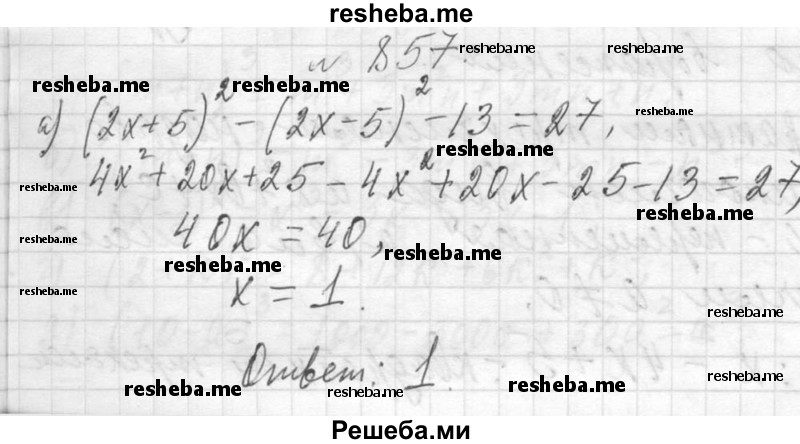 resheba.me
№ 857.
resheba.me resheba.me
resheba.me resheba.me
а) (2x+5)² - (2x-5)² - 13 = 27,
resheba.me
resheba.me
4x² + 20x + 25 - 4x² + 20x - 25 - 13 = 27,
resheba.me
resheba.me
40x = 40,
resheba.me
resheba.me resheba.me
resheba.me
x = 1.
resheba.me
Ответ: 1.
resheba.me resheba.me resheba.me resheba.me
Решеба.ми